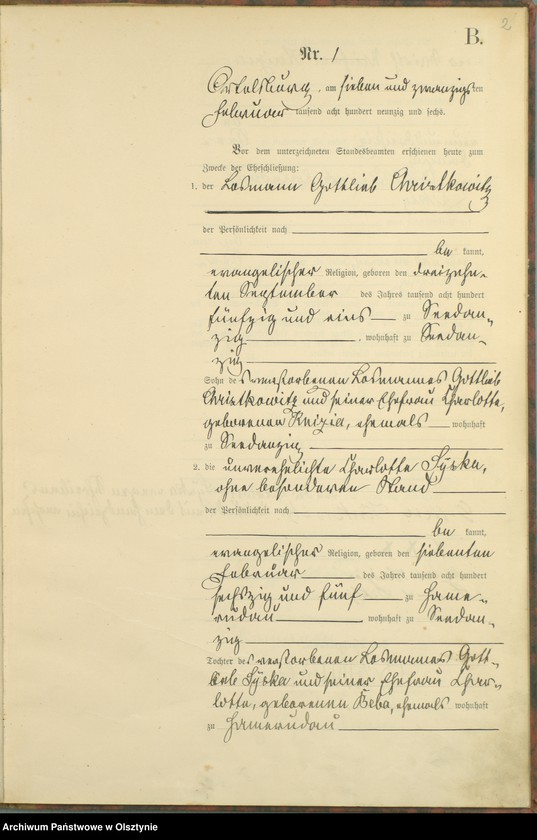 2
B.
Nr. 1
Ortelsburg, am sieben und zwanzigsten
Februar tausend acht hundert neunzig und sechs.
Vor dem unterzeichneten Standesbeamten erschienen heute zum
Zwecke der Eheschließung:
1. der Losmann Gottlieb Christkowitz
der Persönlichkeit nach
bekannt,
evangelischer Religion, geboren den dreizehn-
ten September des Jahres tausend acht hundert
fünfzig und eins zu Seedan-
zig, wohnhaft zu Seedan-
zig
Sohn des verstorbenen Losmannes Gottlieb
Christkowitz und seiner Ehefrau Charlotte,
geborenen Knizia, ehemals wohnhaft
zu Seedanzig
2. die unverehelichte Charlotte Syska,
ohne besonderen Stand
der Persönlichkeit nach
bekannt,
evangelischer Religion, geboren den siebenten
Februar des Jahres tausend acht hundert
sechszig und fünf zu Hame-
rudau, wohnhaft zu Seedan-
zig
Tochter des verstorbenen Losmannes Gott-
lieb Syska und seiner Ehefrau Char-
lotte, geborenen Beba, ehemals wohnhaft
zu Hamerudau
Archiwum Państwowe w Olsztynie